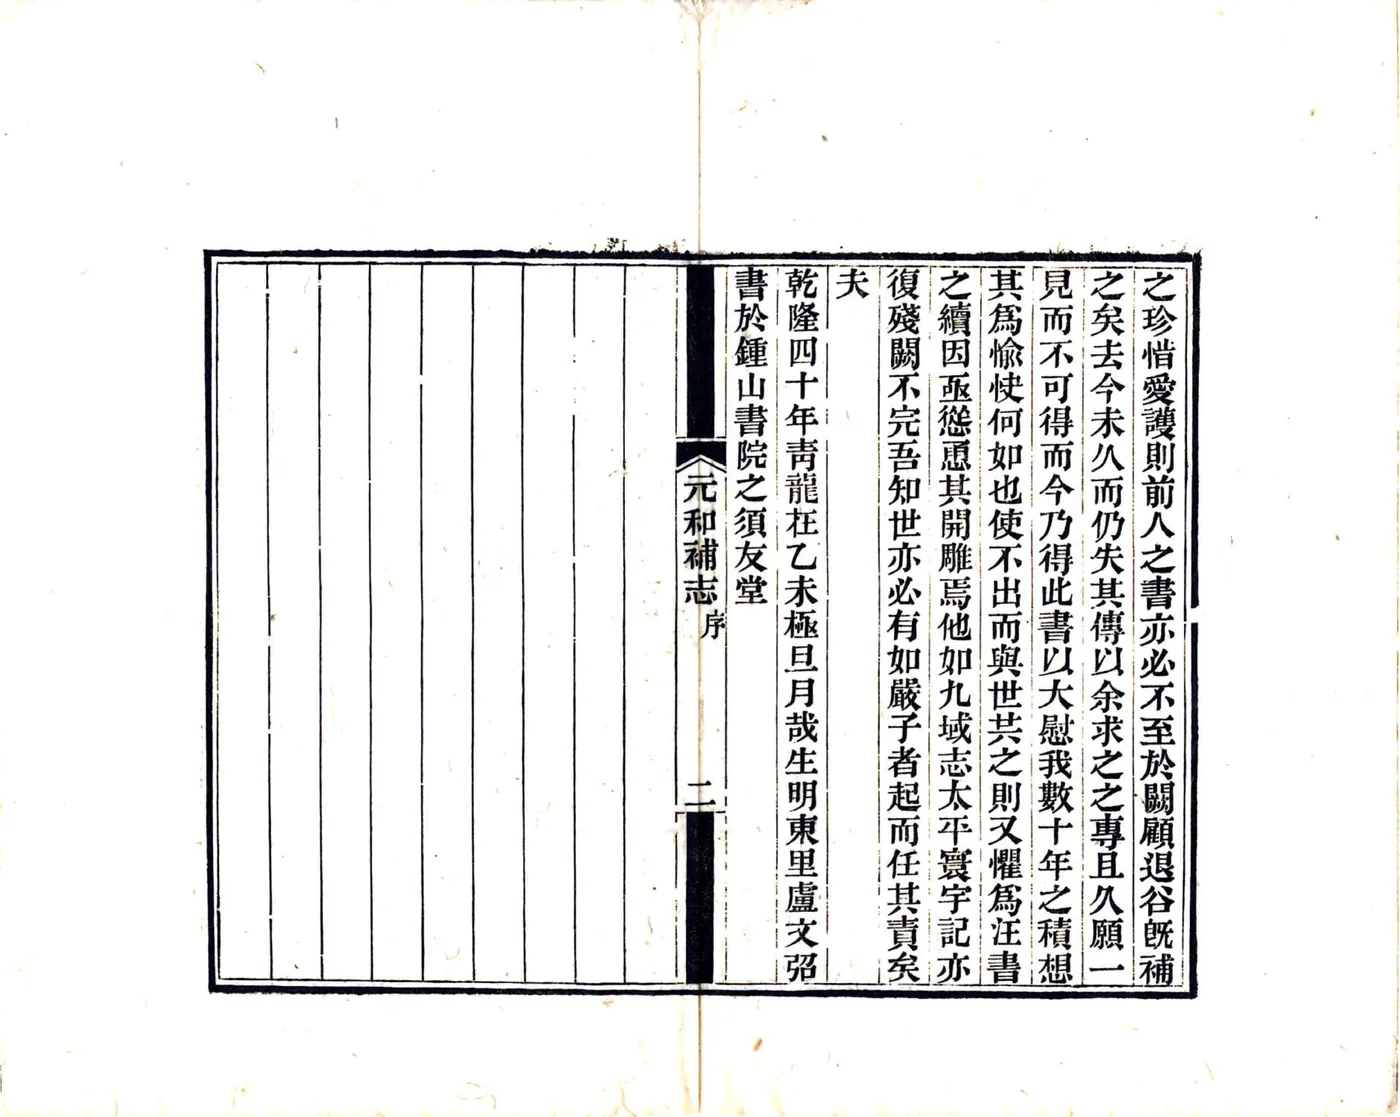 之珍惜愛護則前人之書亦必不至於闕顧退谷旣補
之矣去今未久而仍失其傳以余求之之專且久願一
見而不可得而今乃得此書以大慰我數十年之積想
其爲愉快何如也使不出而與世共之則又懼爲汪書
之續因亟慫恿其開雕焉他如九域志太平寰宇記亦
復殘闕不完吾知世亦必有如嚴子者起而任其責矣
夫
乾隆四十年靑龍在乙未極旦月哉生明東里盧文弨
書於鍾山書院之須友堂
元和補志 序 二